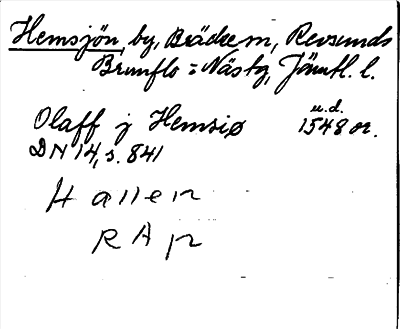 Hemsjön, by, Bräcke sn, Revsunds
Brunflo = Näs tg, Jämtl. l.
Olaff j Hemsiø u.d. 1548 or.
DN 14, s. 841
Hallen
RAp